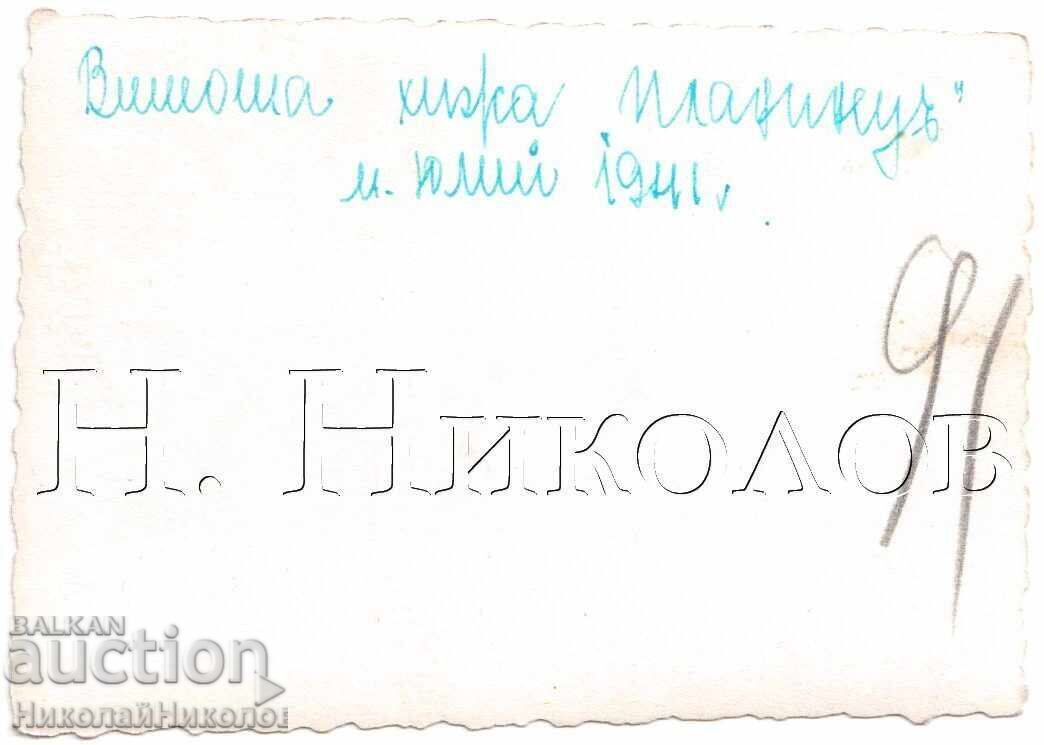 Витоша хижа Планинецъ"
м. Юлий 1941.
91
Н. Николов
BALKAN
auction
НиколайНиколов